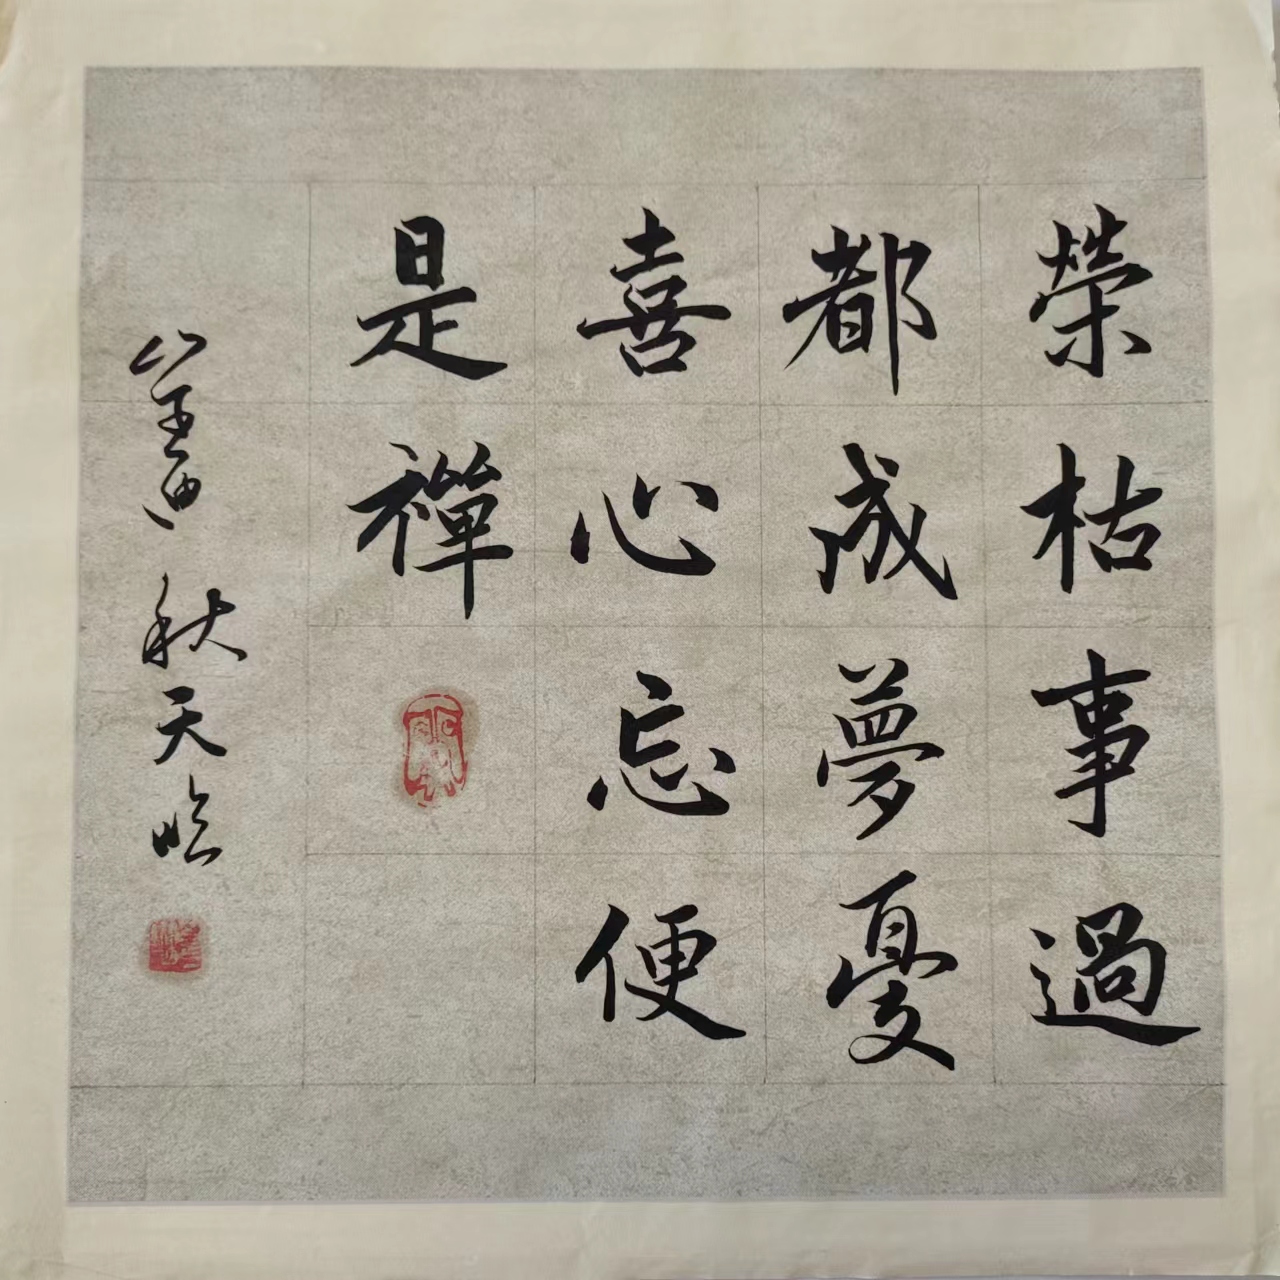 榮枯事過
都成夢憂
喜心忘便
是禪
秋天